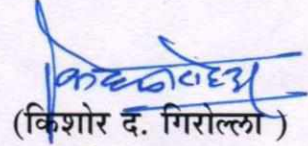 (किशोर द. गिरोल्ला )